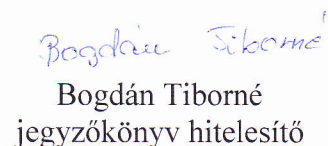 Bogdán Tiborné
Bogdán Tiborné
jegyzőkönyv hitelesítő